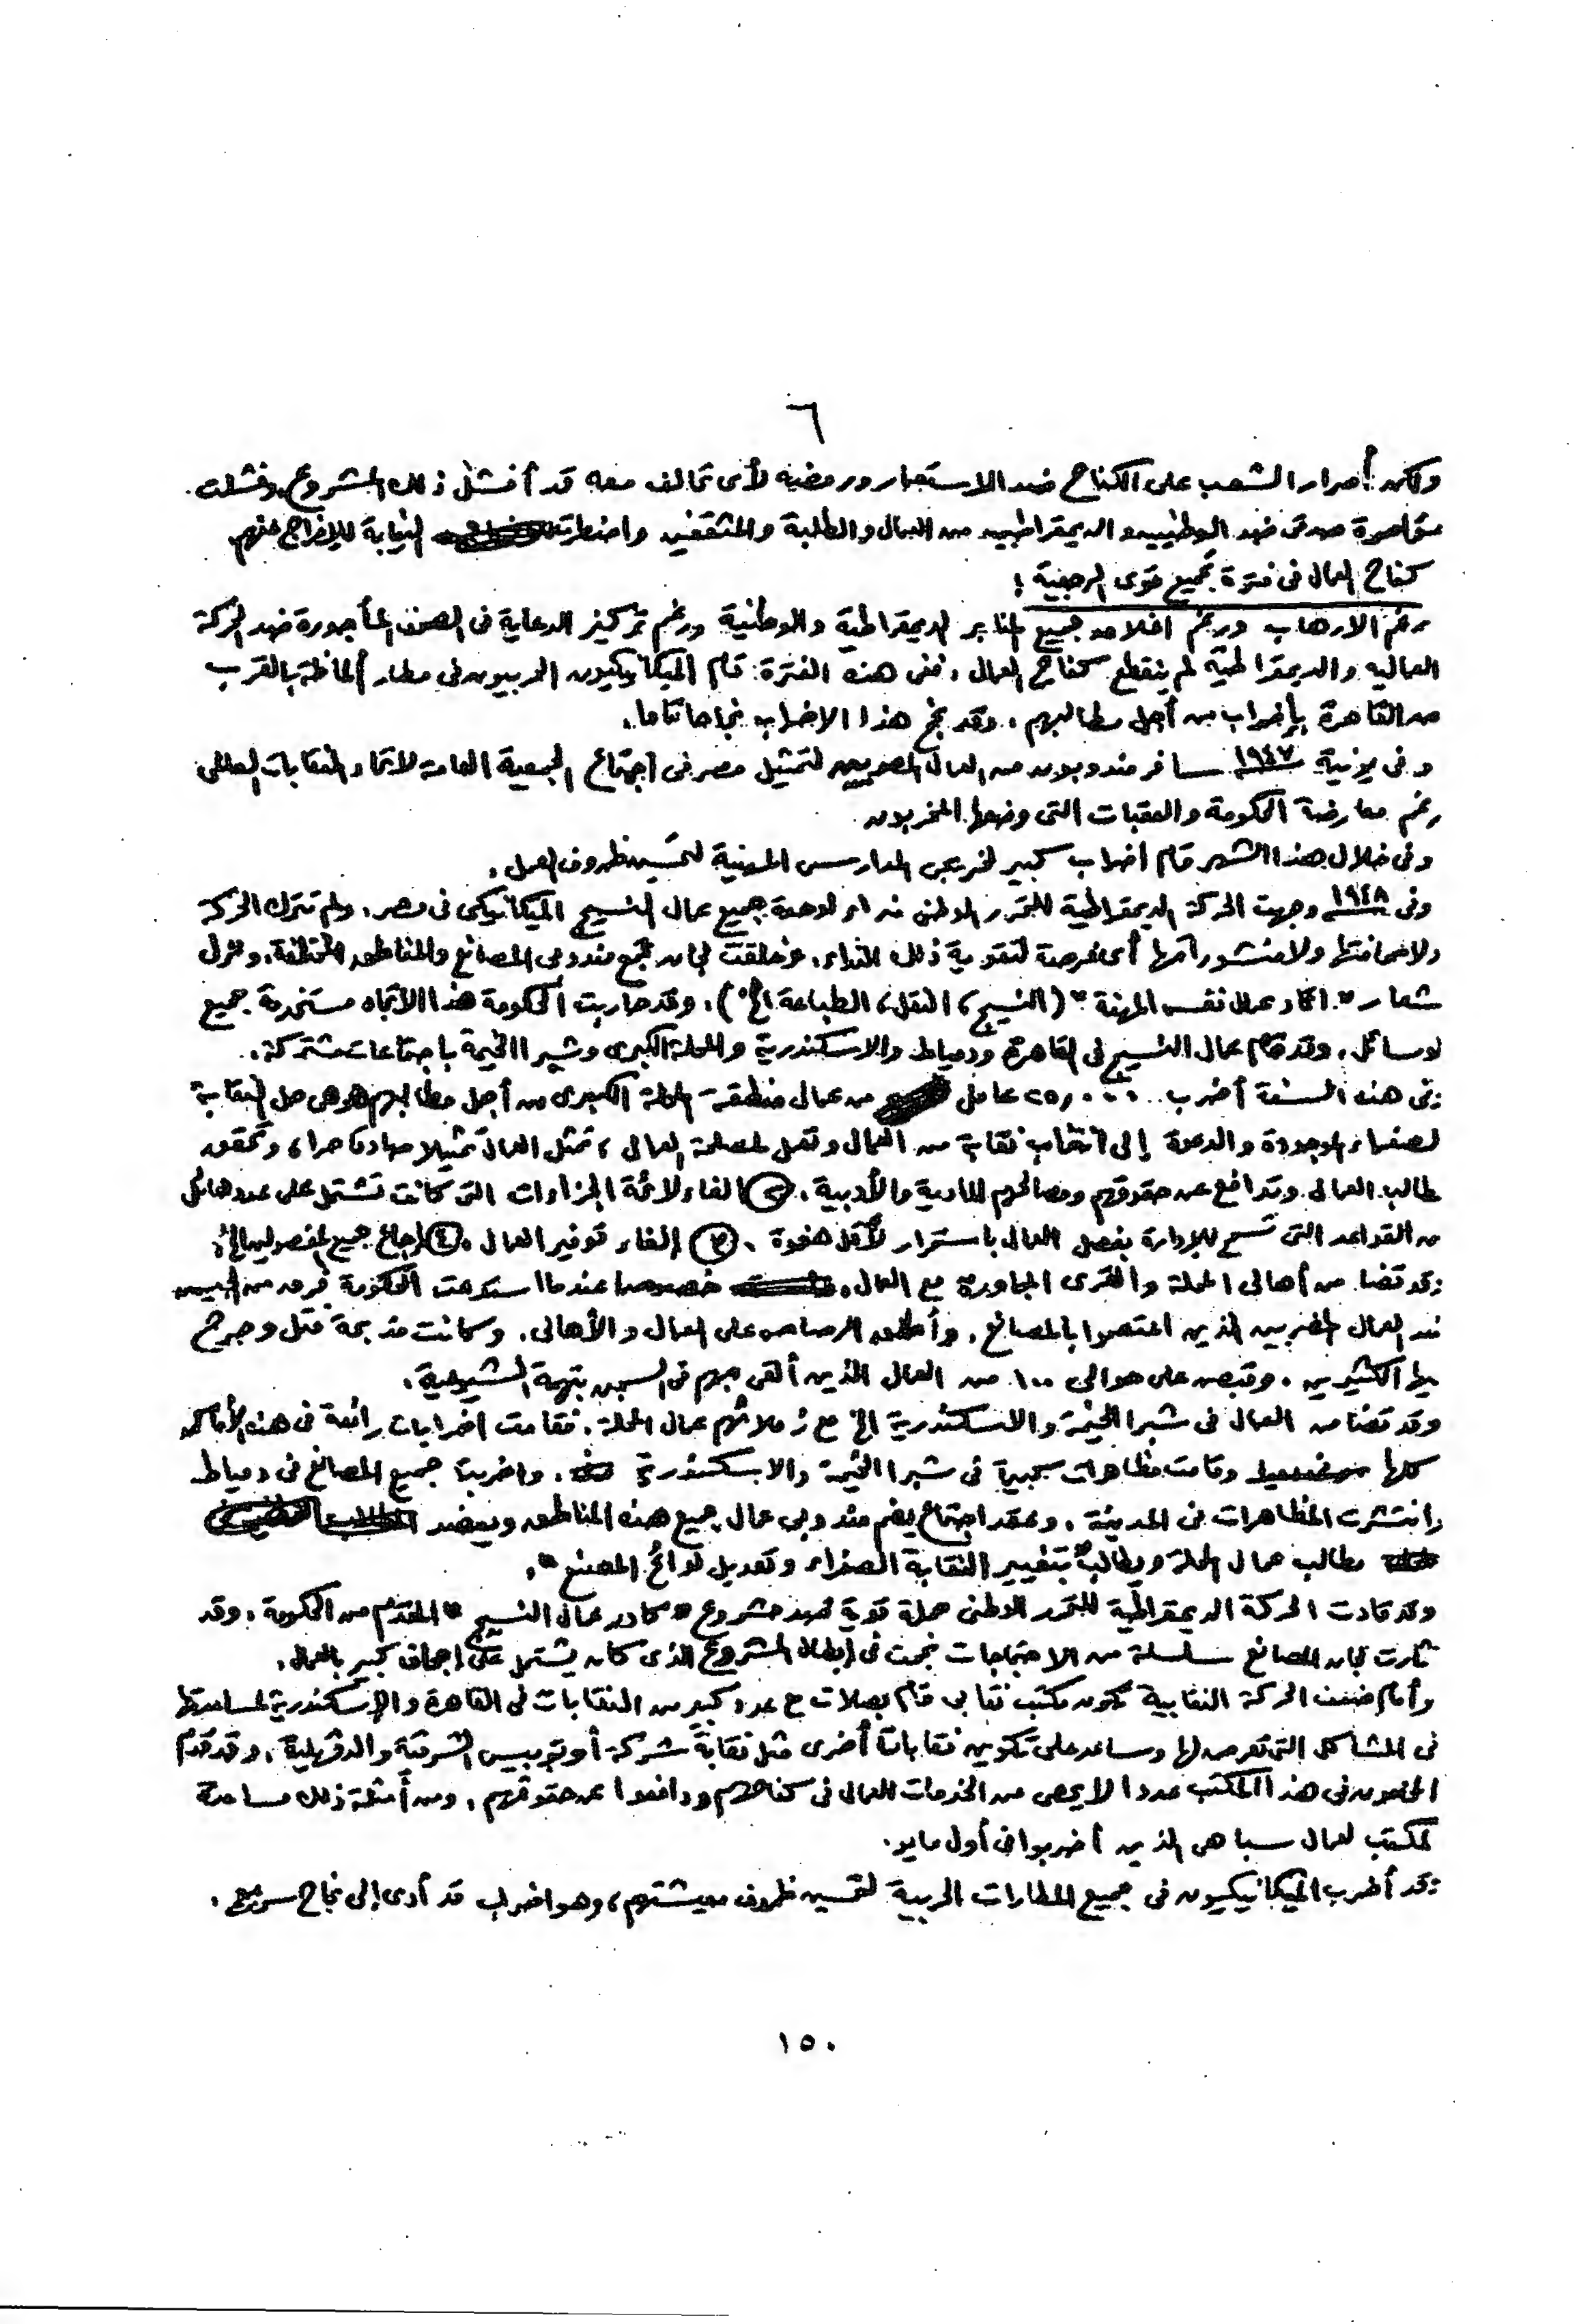 ٦
ولكن إصرار الشعب على الكفاح ضد الاستعمار ورفضه لأى تحالف معه قد أفشل ذلك المشروع، وفشلت
مؤامرة صدقى ضد الوطنيين والديمقراطيين من العمال والطلبة والمثقفين واضطرت النيابة للإفراج عنهم.
كفاح العمال فى فترة تجميع قوى الرجعية :
رغم الارهاب ورغم اغلاق جميع المنابر الديمقراطية والوطنية ورغم تركيز الدعاية فى الصحف المأجورة ضد الحركة
العماليه والديمقراطية لم ينقطع كفاح العمال، ففى هذه الفترة قام الميكانيكيون الحربيون فى مطار ألماظة بالقرب
من القاهرة بإضراب من أجل مطالبهم، وقد نجح هذا الاضراب نجاحا تاما.
وفى يونية ١٩٤٧ سافر مندوبون من العمال المصريين لتمثيل مصر فى اجتماع الجمعية العامة لاتحاد النقابات العالمى
رغم معارضة الحكومة والعقبات التى وضعها المخربون
وفى خلال هذا الشهر قام اضراب كبير لخريجى المدارس المهنية لتحسين ظروف العمل.
وفى ١٩٤٨ وجهت الحركة الديمقراطية للتحرر الوطنى نداء لوحدة جميع عمال النسيج الميكانيكى فى مصر، ولم تترك الحركة
ولا صحافتها ولا منشوراتها أى فرصة لتقوية ذلك النداء، وخلقت لجان تجمع مندوبى المصانع والمناطق المختلفة، ونزل
شعار " اتحاد عمال نفس المهنة " (النسيج، النقل، الطباعة الخ)، وقد حاربت الحكومة هذا الاتجاه مستخدمة جميع
لوسائل، وقد قام عمال النسيج فى القاهرة ودمياط والاسكندرية والمحلة الكبرى وشبرا الخيمة باجتماعات مشتركة.
فى هذه السنة أضرب ٢٥,٠٠٠ عامل من عمال منطقة المحلة الكبرى من أجل مطالبهم هى حل النقابة
لصفراء الموجودة والدعوة إلى انتخاب نقابة من العمال وتعمل لمصلحة العمال، تمثل العمال تمثيلا صادقا حرا، وتحقق
طالب العمال وتدافع عن حقوقهم ومصالحهم المادية والأدبية. (٢) الغاء لائحة الجزاءات التى كانت تشتمل على عدد هائل
من القواعد التى تسمح للإدارة بفصل العمال باستمرار لأقل هفوة. (٣) إلغاء توفير العمال. (٤) إرجاع جميع المفصولين الخ:
وقد تضامن أهالى المحلة والقرى المجاورة مع العمال، خصوصا عندما استدعت الحكومة فرقة من الجيش
ضد العمال المضربين الذين اعتصموا بالمصانع، وأطلق الرصاص على العمال والأهالى، وكانت مذبحة قتل وجرح
فيها الكثيرين، وقبض على حوالى ١٠٠ من العمال الذين ألقى بهم فى السجن بتهمة الشيوعية.
وقد تضامن العمال فى شبرا الخيمة والاسكندرية الخ مع زملائهم عمال المحلة، فقامت اضرابات رائعة فى هذه الأماكن
كلها وقامت مظاهرات كبيرة فى شبرا الخيمة والاسكندرية، واضربت جميع المصانع فى دمياط
وانتشرت المظاهرات فى المدينة، وعقد اجتماع يضم مندوبى عمال جميع هذه المناطق ويعضد
مطالب عمال المحلة ويطالب "بتغيير النقابة الصفراء وتعديل لوائح المصنع".
وقد قادت الحركة الديمقراطية للتحرر الوطنى حملة قوية ضد مشروع "كادر عمال النسيج" المقدم من الحكومة، وقد
ثارت لجان المصانع سلسلة من الاحتجاجات نجحت فى إبطال المشروع الذى كان يشتمل على إجحاف كبير بالعمال.
وأمام ضعف الحركة النقابية تكون مكتب نقابى قام بصلات مع عدد كبير من النقابات فى القاهرة والإسكندرية لمساعدتها
فى المشاكل التى تعرض لها وساعد على تكوين نقابات أخرى مثل نقابة شركة أوتوبيس الشرقية والدقهلية، وقد قدم
المحامون فى هذا المكتب عددا لا يحصى من الخدمات للعمال فى كفاحهم ودافعوا عن حقوقهم، ومن أمثلة ذلك مساعدة
لمكتب لعمال سباهى الذين أضربوا فى أول مايو.
وقد أضرب الميكانيكيون فى جميع المطارات الحربية لتحسين ظروف معيشتهم، وهو اضراب قد أدى إلى نجاح سريع.
١٥٠